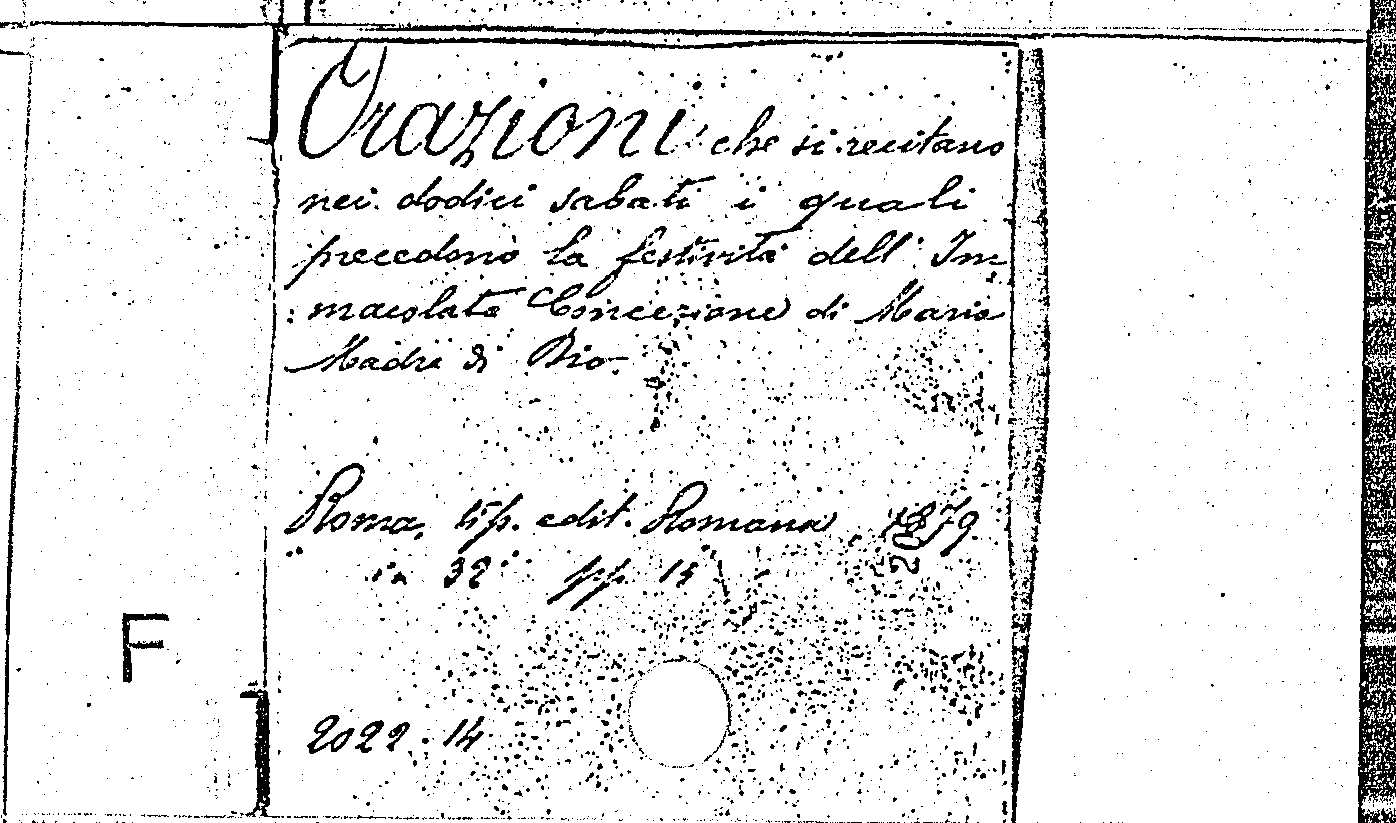 Orazioni che si recitano
nei dodici sabati i quali
precedono la festività dell' Im-
macolata Concezione di Maria
Madre di Dio.
Roma, tip. edit. Romana 1879
in 32° pp. 15
F
2022. 14